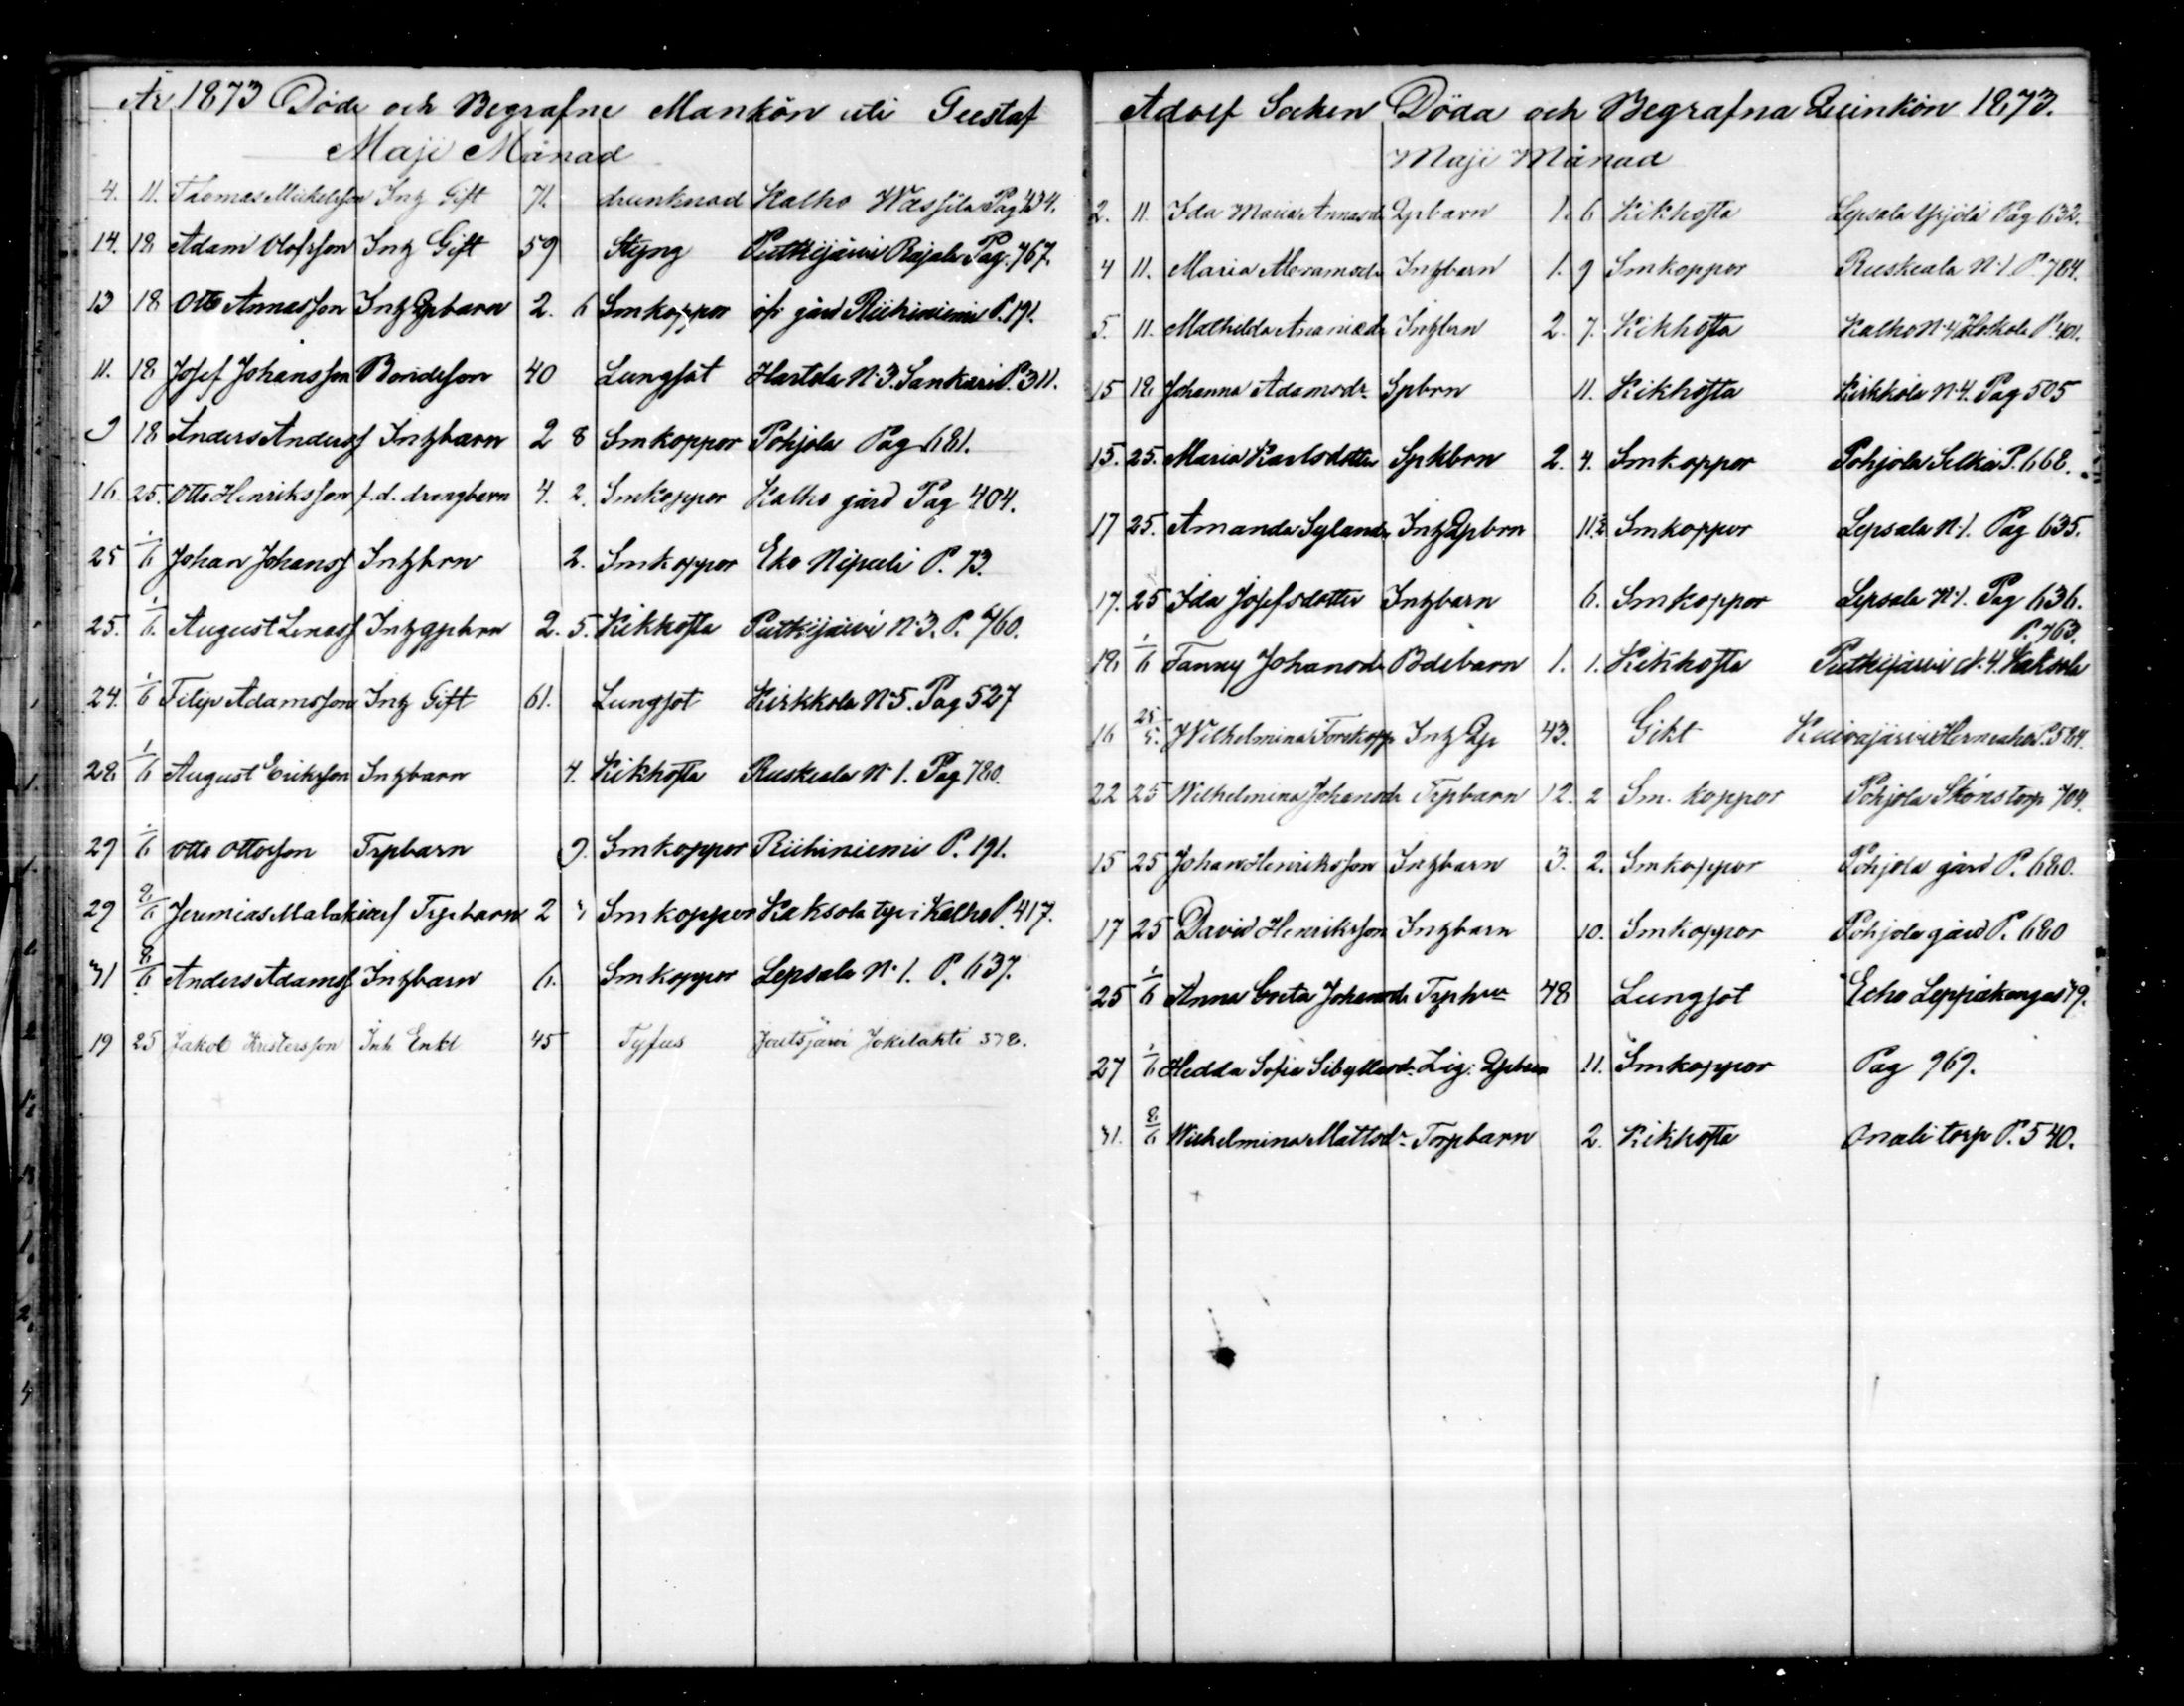 År 1873 Döde och Begrafne Mankön uti Gustaf
Maji Månad
4. 11. Thomas Mickelsson Inh Gift 71. drunknad Kalho Wassila Pag 434.
14. 18 Adam Olofsson Inh Gift 59 Styng Putkijärvi Rajala Pag. 767.
13 18 Otto Annasson Inh Qpbarn 2. 6 Smkoppor öfr gård Riihiniemi P. 191.
11. 18 Josef Johansson Bondeson 40 Lungsot Hartola N:3. Sankari P. 311.
9 18 Anders Anderss Inhbarn 2 8 Smkoppor Pohjola Pag 681.
16. 25. Otto Henriksson f.d. drengbarn 4. 2. Smkoppor Kalho gård Pag 404.
25 1/6 Johan Johanss Inhbrn 2. Smkoppor Eko Nipuli P. 73.
25. 1/6. August Lenass Inhqpbrn 2. 5. Kikhosta Putkijärvi N:3. P. 760.
24. 1/6 Filip Adamsson Inh Gift 61. Lungsot Kirkkola N:5. Pag 527
28. 1/6 August Eriksson Inhbarn 4. Kikhosta Ruskeala N:1. Pag 780.
29 1/6 Otto Ottosson Trpbarn 9. Smkoppor Riihiniemi P. 191.
29 8/6 Jeremias Malakiass Trpbarn 2 3 Smkoppor Kaksola trp i Kalho P. 417.
31 8/6 Anders Adamss Inhbarn 6. Smkoppor Lepsala N:1. P. 637.
19 25 Jakob Kristersson Inh Enkl 45 Tyfus Joutsjärvi Jokilahti 378.
Adolf Socken Döda och Begrafna Quinkön 1873.
Maji Månad
2. 11. Ida Maria Annasd. Qpbarn 1. 6 Kikhosta Lepsala Yrjölä Pag 632.
4 11. Maria Abramsdr Inhbarn 1. 9 Smkoppor Ruskeala N:1. P. 784.
5. 11. Mathilda Ananiædr Inhbrn 2. 7. Kikhosta Kalho N:4 P. 401.
15 18 Johanna Adamsdr. Spbrn 11. Kikhosta Kirkkola N:4. Pag 505
15. 25. Maria Karlsdotter Spkbrn 2. 4. Smkoppor Pohjola Selkä P. 668.
17 25. Amanda Inh Qpbrn 11 1/2 Smkoppor Lepsala N:1. Pag 635.
17. 25 Ida Josefsdotter Inhbarn 6. Smkoppor Lepsala N:1. Pag 636.
P. 763.
18 1/6 Fanny Johansdr Bdebarn 1. 1. Kikhosta Putkijärvi N:4. Kaksola
16 25/5. Wilhelmina Forskopp Inh Qp 43. Gikt Kuivajärvi Herneaho P. 564.
22 25 Wilhelmina Johansdr Trpbarn 12. 2 Sm. koppor Pohjola Sköns torp 704.
15 25 Johan Henriksson Inhbarn 3. 2. Smkoppor Pohjola gård P. 680.
17 25 David Henriksson Inhbarn 10. Smkoppor Pohjola gård P. 680
25 1/6 Anna Greta Johansdr Trphru 48 Lungsot Echo Leppäkangas 79.
27 1/6 Hedda Sofia Sibyllasdr. Qpbarn 11. Smkoppor Pag 969.
31. 8/6 Wilhelmina Mattsdr. Torpbarn 2. Kikhosta Onali torp P. 540.